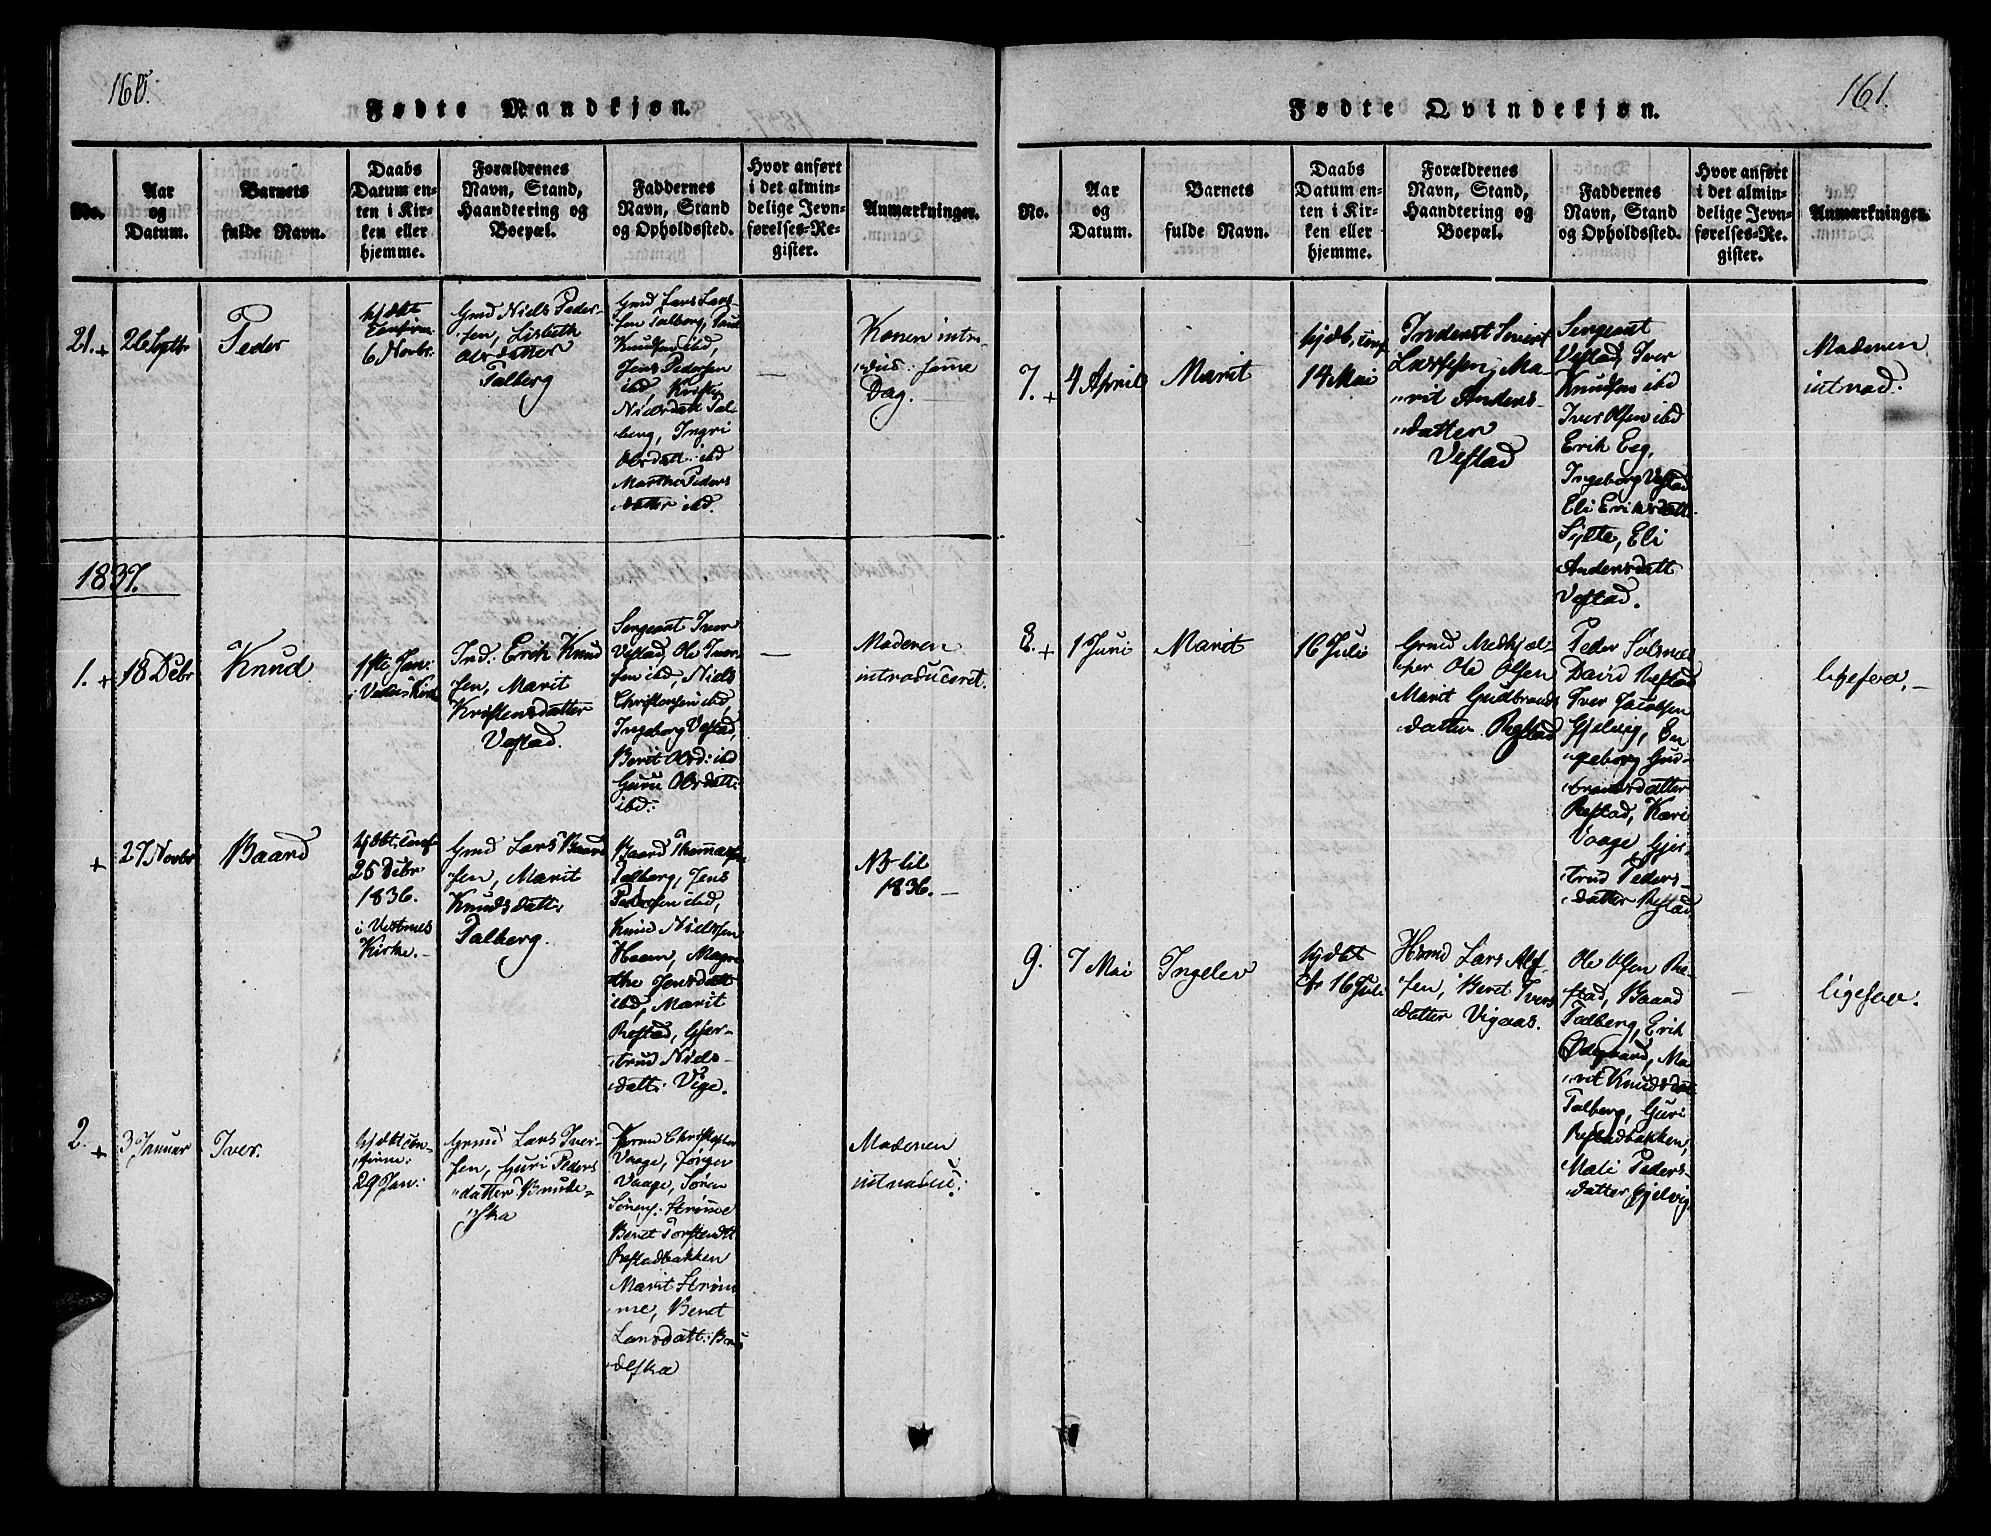 160.
Fødte Mandkjøn.
No.
Aar
og
Datum.
Barnets
fulde Navn.
Daabs
Datum en-
ten i Kir-
ken eller
hjemme.
Forældrenes
Navn, Stand,
Haandtering og
Boepæl.
Faddernes
Navn, Stand
og Opholdssted.
Hvor anført
i det almin-
delige Jevn-
førelses-Re-
gister.
Anmærkninger.
21. +
26 Septbr
Peder
hjdøbt
confirm:
6 Novbr.
Gmd Niels Peder-
sen, Lisbeth
Olsdatter
Talberg
Gmd Lars Lars-
sen Talberg,
Knudsen ibd,
Jens Pedersen
ibd
Nielsdatt Tal-
berg, Ingri
Olsdatt: ibd
Marthe Peders
datter ibd.
—
Konen intro-
duc: samme
Dag.
1837.
1. +
18 Debr
Knud
1ste Jan:
i Kirke
Ind: Erik Knud
sen, Marit
Kristensdatter
Vestad.
Sergeant Iver
Vestad, Ole Iver-
sen ibd, Niels
Christensen ibd,
Ingeborg Vestad,
Berit Olsd: ibd
Guru Olsdatt:
ibd:
—
Moderen
introduceret.
+
27 Novbr
Baard
hjdøbt, conf
26 Debr
1836.
i Vestnes
Kirke.
Gmd Lars Baard
sen, Marit
Knudsdatt:
Talberg.
Baard Thomassen
Talberg, Jens
Pedersen ibd,
Knud Nielssen
Haem, Magre
the Jensdatt
ibd, Marit
Restad, Gjer-
trud Niels-
datt: Vige.
NB til
1836.
2. +
3 Januar
Iver.
hjdøbt con-
firm:
29 Jan:
Gmd Lars Iver-
sen, Guri Peders
datter Brude-
ska
Christopher
Vaage, Jørgen
Vaage, Søren
Sørens: Strømme
Beret Torstendt
Restadbakken
Marit Strøm-
me, Beret
Larsdatt: Bru
deska
Moderen
introduc:
161.
Fødte Qvindekjøn.
No.
Aar
og
Datum.
Barnets
fulde Navn.
Daabs
Datum en-
ten i Kir-
ken eller
hjemme.
Forældrenes
Navn, Stand,
Haandtering og
Boepæl.
Faddernes
Navn, Stand
og Opholdssted.
Hvor anført
i det almin-
delige Jevn-
førelses-Re-
gister.
Anmærkninger.
7. +
4 April
Marit
hjdb, conf
14 Mai
Inderst Sivert
Larssen, Ma-
rit Anders-
datter
Vestad
Sergeant
Vestad, Iver
Knudsen ibd
Iver Olsen ibd
Erik Eeg,
Ingeborg Vestad
Eli Eriksdatt:
Sylte, Eli
Andersdatt
Vestad.
Moderen
introd:
8. +
1 Juni
Marit
16 Juli
Gmd Medhjæl-
per Ole Olsen
Marit Gudbrands
datter Restad
Peder Solsnæs
David Restad
Iver Jacobsen
Gjelvig, En
geborg Gud-
brandsdatter
Restad, Kari
Vaage, Gjer-
trud Peders-
datter Restad
ligesaa.
9.
7 Mai
Ingelev
hjdøbt
cf 16 Juli
Hsmd Lars Als-
sen, Beret Ivers
datter Vigaas.
Ole Olsen Re-
stad, Baard
Talberg, Erik
Ødegaard, Ma
rit Knudsdatt
Talberg, Guri
Restadbakken,
Mali Peders-
datter Gjelvig
—
ligesaa.